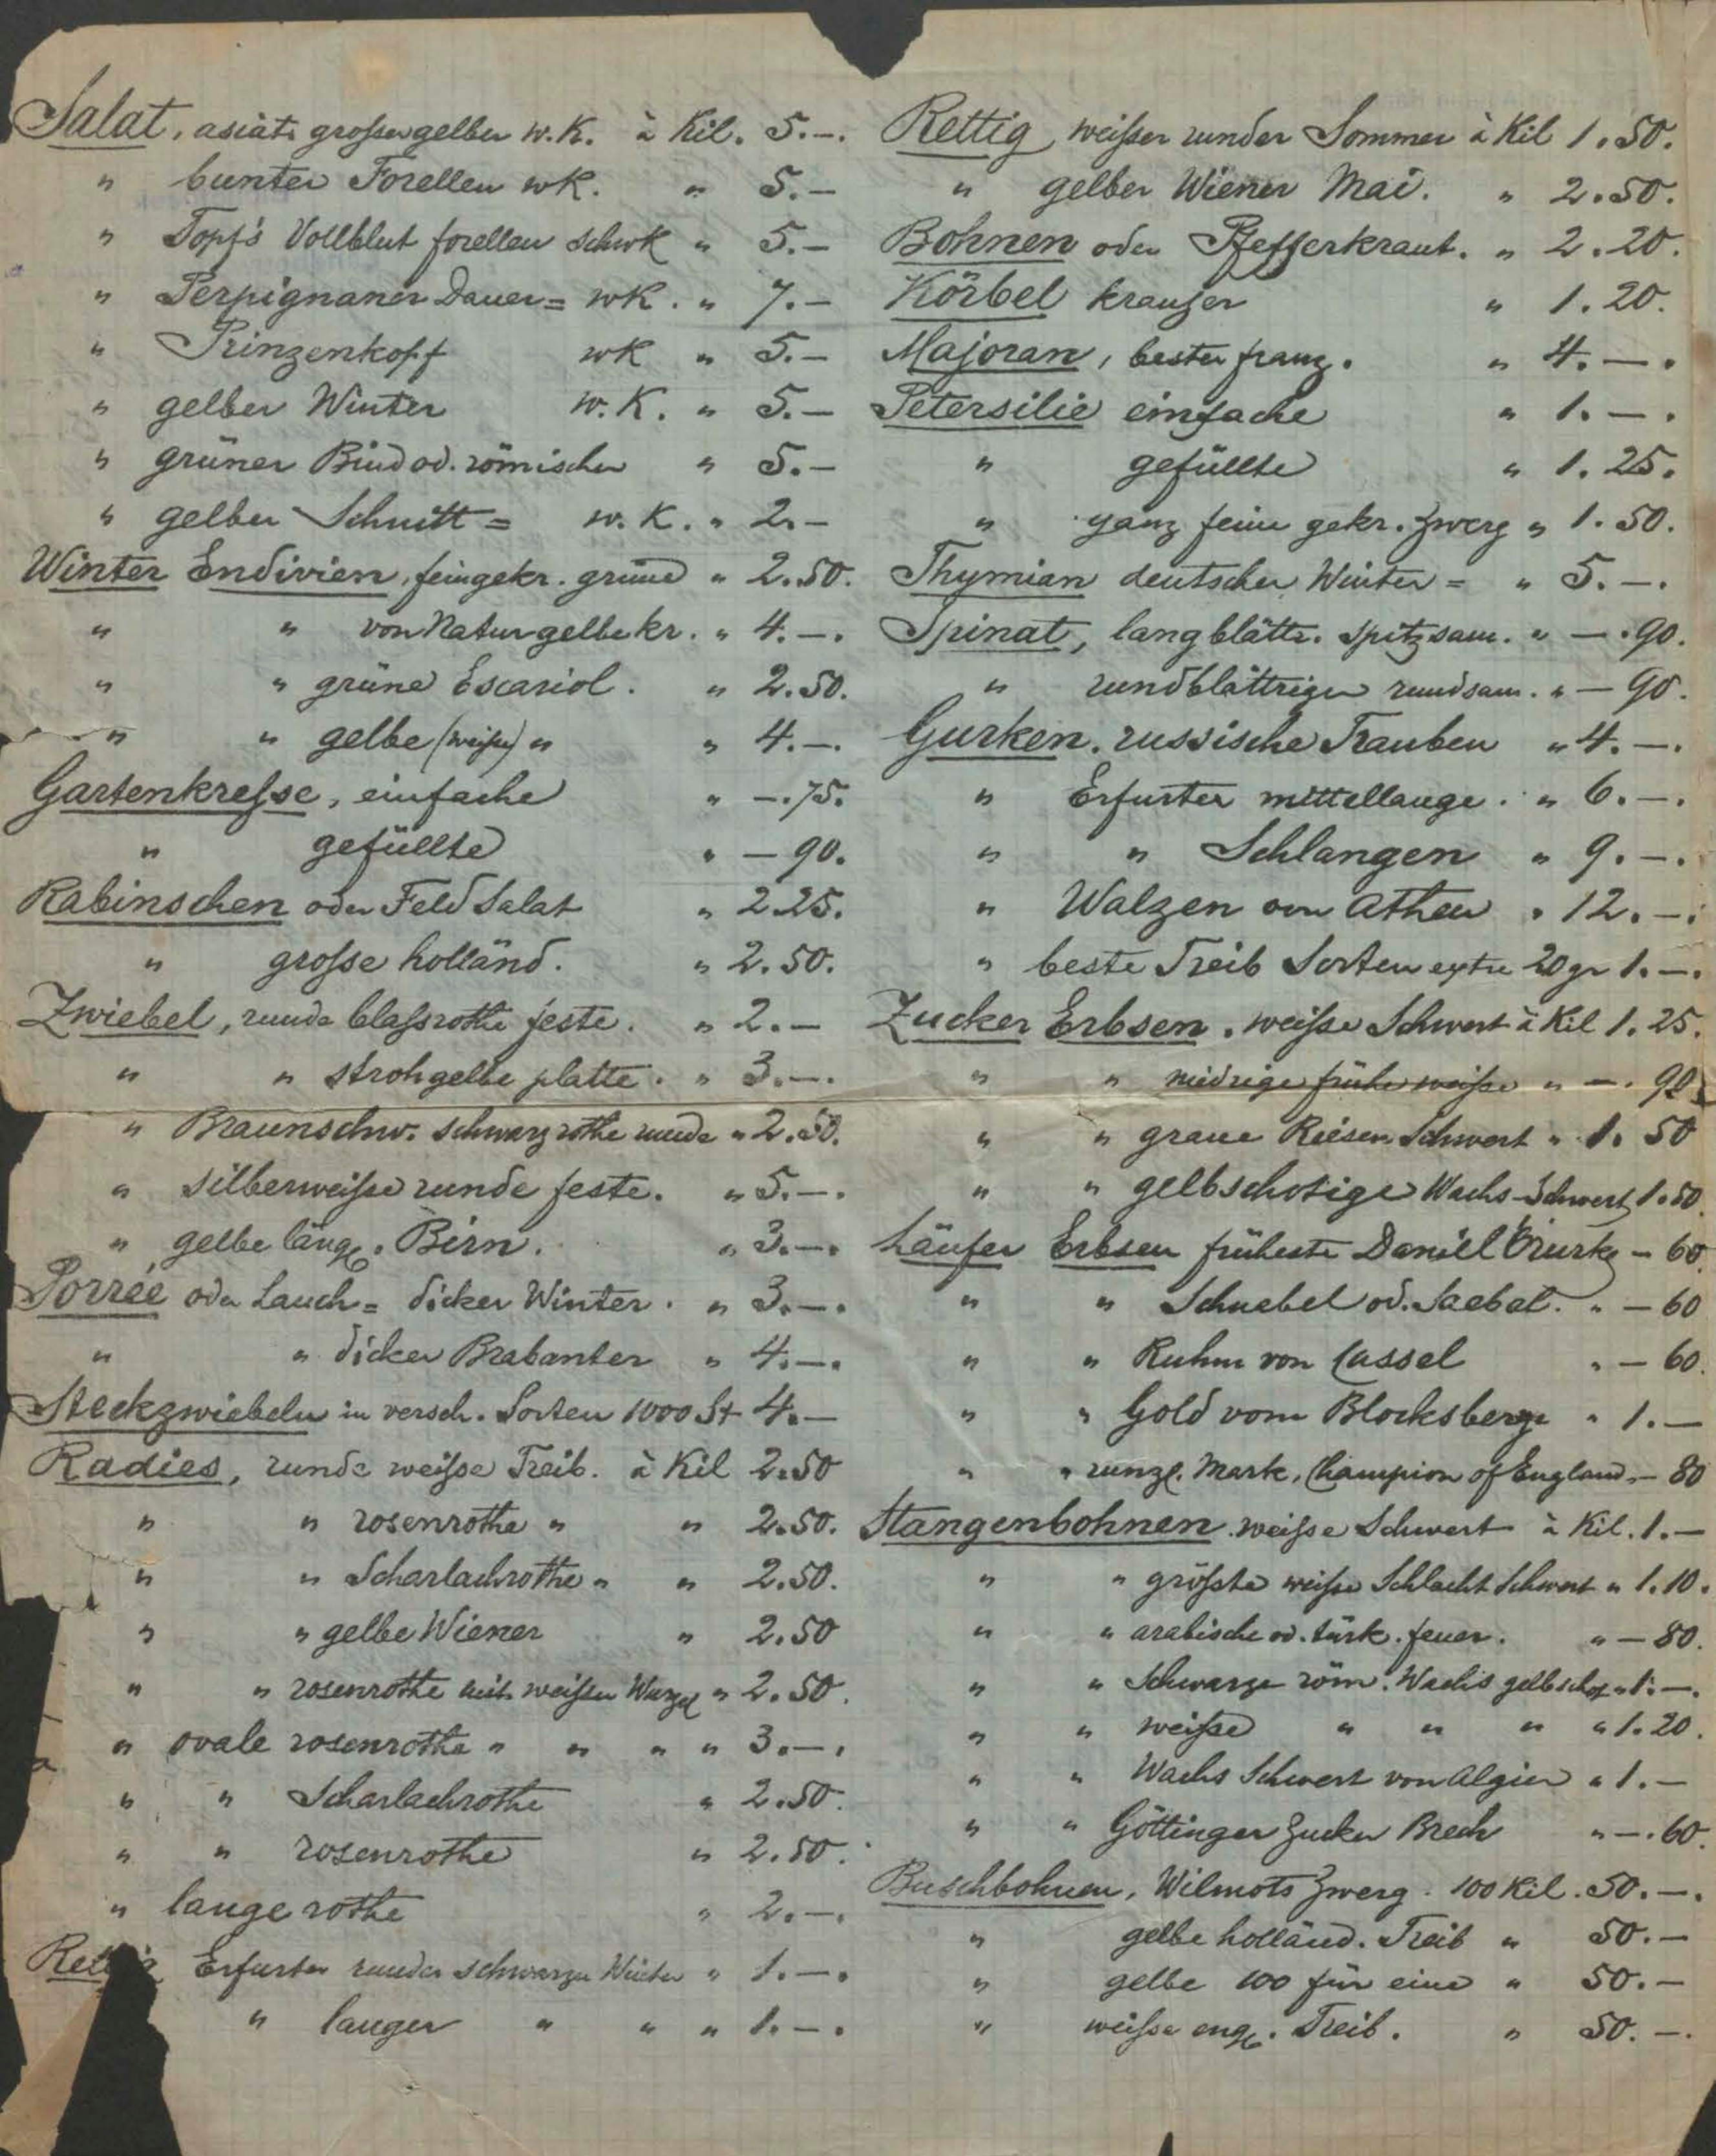 Salat, asiat. grosser gelber w. K. à Kil. 5.-.
" bunter Forellen wK. " 5.-
" Topf's Vollblut forellen schwK " 5.-
" Perpignaner Dauer= wK. " 7.-
" Prinzenkopf wK " 5.-
" gelber Winter w. K. " 5.-
" grüner Bind od. römischer " 5.-
" gelber Schnitt= w. K. " 2.-
Winter Endivien, feingekr. grüne " 2.50.
" " von Natur gelbe kr. " 4.-.
" " grüne Escariol. " 2.50.
" " gelbe (weiße) " " 4.-.
Gartenkresse, einfache " -.75.
" gefüllte " - 90.
Rabinschen oder Feld Salat " 2.25.
" grosse holländ. " 2.50.
Zwiebel, runde blassrothe feste. " 2.-
" " strohgelbe platte. " 3.-.
" Braunschw. schwarzrothe runde " 2.50.
" silberweiße runde feste. " 5.-.
" gelbe längl. Birn. " 3.-.
Porrée oder Lauch= dicker Winter. " 3.-.
" " dicker Brabanter " 4.-.
Steckzwiebeln in versch. Sorten 1000 St 4.-
Radies, runde weiße Treib. à Kil 2.50
" " rosenrothe " " 2.50.
" " Scharlachrothe " " 2.50.
" " gelbe Wiener " 2.50
" " rosenrothe mit weißer Wurzel " 2.50.
" ovale rosenrothe " " " " 3.-.
" " Scharlachrothe " 2.50.
" " rosenrothe " 2.50.
" lange rothe " 2.-.
Rettig Erfurter runder schwarzer Winter " 1.-.
" langer " " " 1.-.
Rettig weißer runder Sommer à Kil 1.50.
" gelber Wiener Mai. " 2.50.
Bohnen oder Pfefferkraut. " 2.20.
Körbel krauser " 1.20.
Majoran, bester franz. " 4.-.
Petersilie einfache " 1.-.
" gefüllte " 1.25.
" ganz feine gekr. Zwerg " 1.50.
Thymian deutscher Winter= " 5.-.
Spinat, langblättr. spitzsam. " -.90.
" rundblättriger rundsam. " - 90.
Gurken, russische Trauben " 4.-.
" Erfurter mittellange. " 6.-.
" " Schlangen " 9.-.
" Walzen von Athen " 12.-.
" beste Treib Sorten extra 20 gr 1.-.
Zucker Erbsen, weiße Schwert à Kil 1.25.
" " niedrige frühe weiße " -. 90
" " graue Riesen Schwert " 1. 50
" " gelbschotige Wachs-Schwert 1.50.
Läufer Erbsen früheste Daniel O'rurke - 60.
" " Schnabel od. Saebel. " - 60
" " Ruhm von Cassel " - 60.
" " Gold vom Blocksberge " 1.-
" " runzl. Mark, Champion of England " - 80
Stangenbohnen weiße Schwert à Kil. 1.-
" " größte weiße Schlacht Schwert " 1.10.
" " arabische od. türk. feuer. " - 80.
" " Schwarze röm. Wachs gelbschot " 1.-.
" " weiße " " " " 1.20.
" " Wachs Schwert von Algier " 1.-
" " Göttinger Zucker Brech " -.60.
Buschbohnen, Wilmots Zwerg. 100 Kil. 50.-.
" gelbe holländ. Treib " 50.-
" gelbe 100 für eine " 50.-
" weiße engl. Treib. " 50.-.